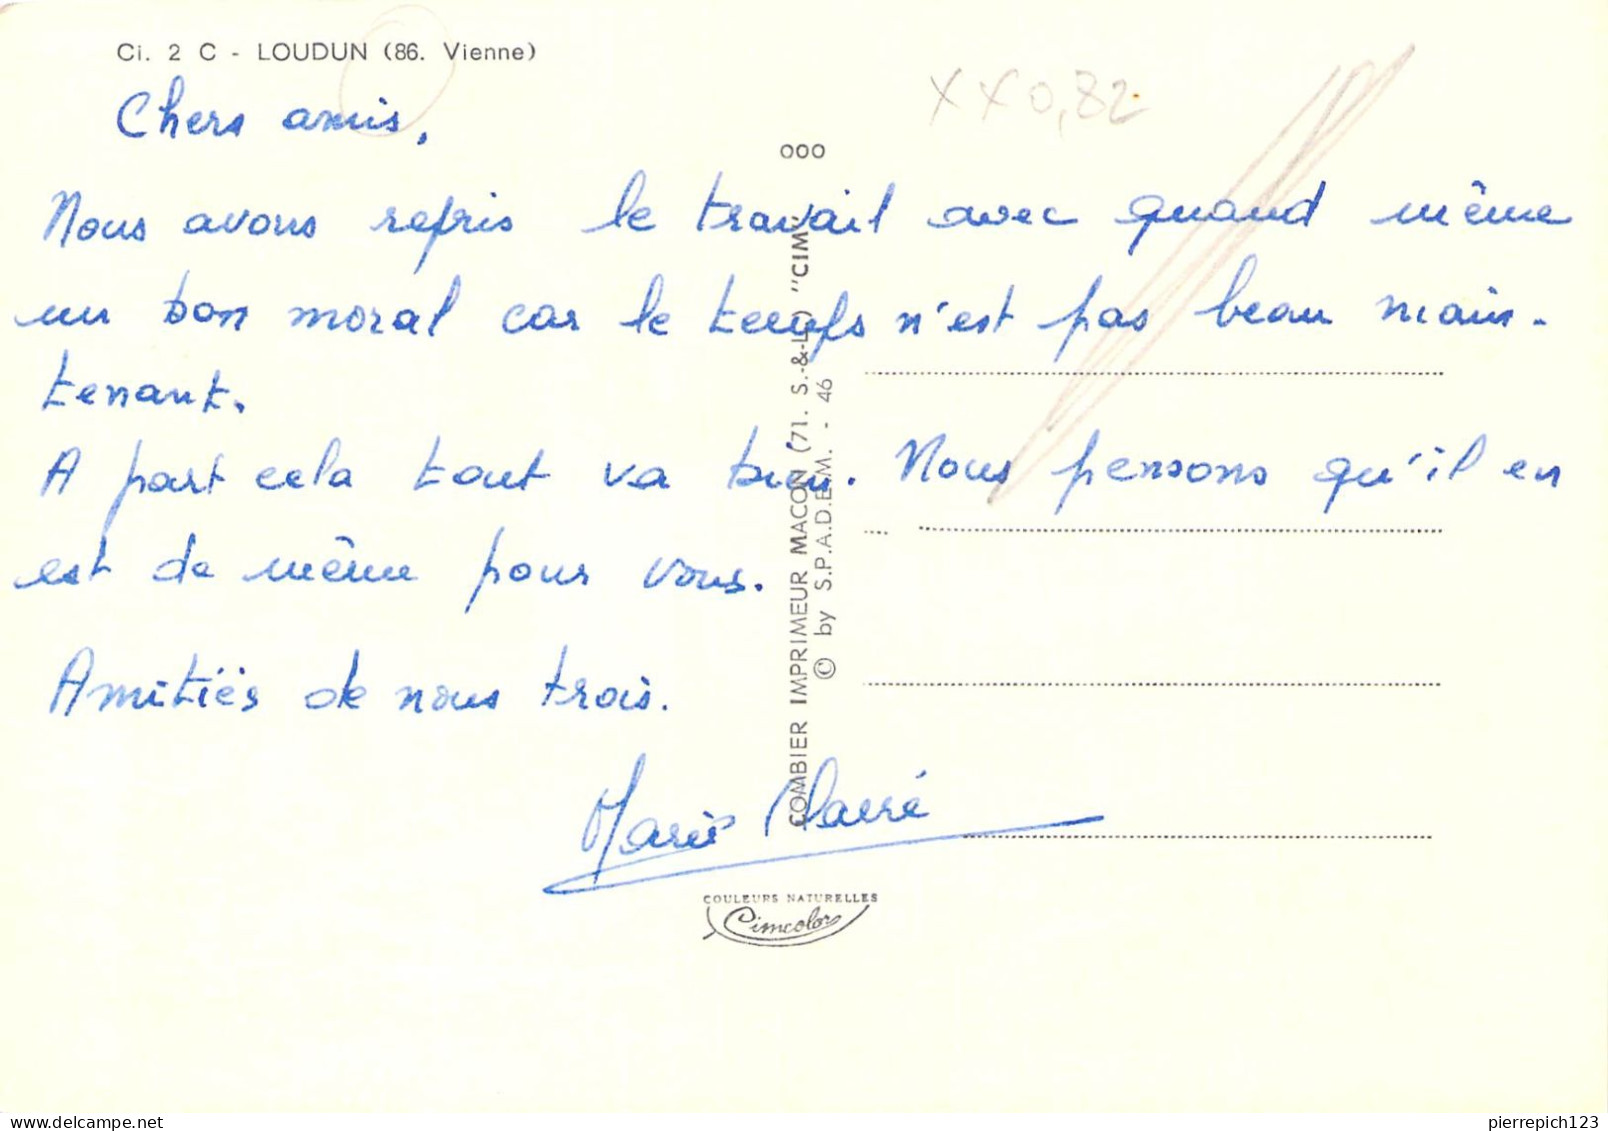 Ci. 2 C - LOUDUN (86. Vienne)
XX0,82
Chers amis,
ooo
Nous avons repris le travail avec quand même
un bon moral car le temps n'est pas beau main-
tenant.
A part cela tout va bien. Nous pensons qu'il en
est de même pour vous.
Amitiés de nous trois.
Marie
COMBIER IMPRIMEUR MACON (71. S.-&-L.) "CIM"
© by S.P.A.D.E.M. - 46
COULEURS NATURELLES
Cimcolor
pierrepich123